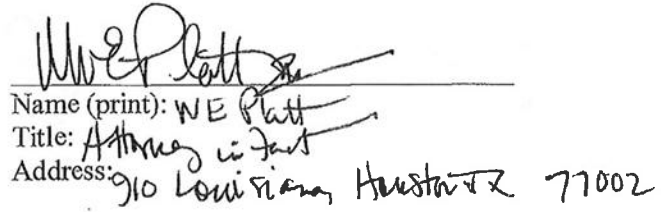 WE Platt
Name (print): WE Platt
Title: Attorney in Fact
Address: 910 Louisiana, Houston TX 77002